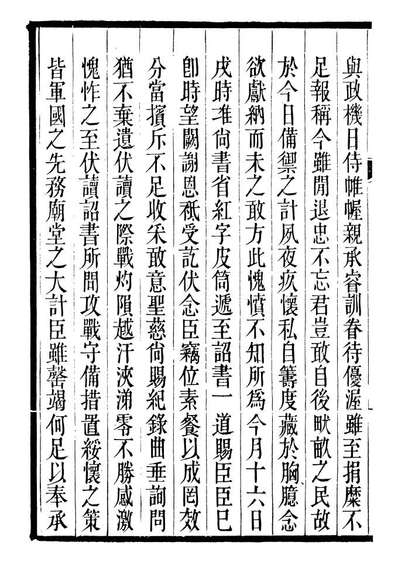 與政機日侍帷幄親承睿訓眷待優渥雖至捐糜不
足報稱今雖閒退忠不忘君豈敢自後畎畝之民故
於今日備禦之計夙夜疚懷私自籌度藏於胸臆念
欲獻納而未之敢方此愧憤不知所爲今月十六日
戌時准尚書省紅字皮筒遞至詔書一道賜臣臣已
卽時望闕謝恩祗受訖伏念臣竊位素餐以成罔效
分當擯斥不足收采敢意聖慈尙賜紀錄曲垂詢問
猶不棄遺伏讀之際戰灼隕越汗浹涕零不勝感激
愧怍之至伏讀詔書所問攻戰守備措置綏懷之策
皆軍國之先務廟堂之大計臣雖罄竭何足以奉承